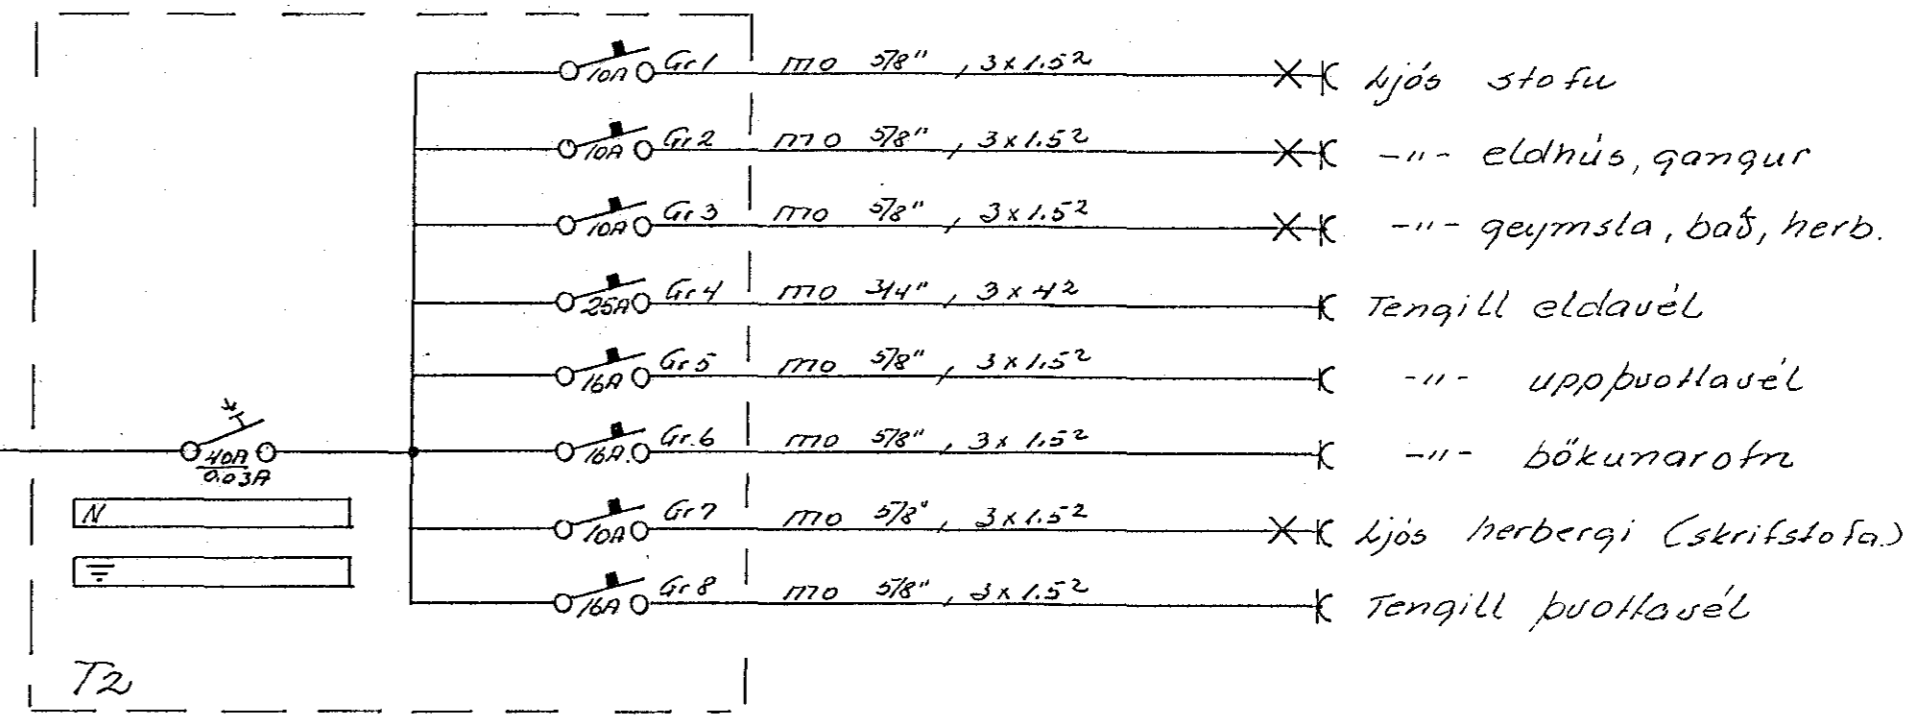 10A Gr 1 mo 5/8" , 3 x 1.5² Ljós stofu
10A Gr 2 mo 5/8" , 3 x 1.5² -"- eldhús, gangur
10A Gr 3 mo 5/8" , 3 x 1.5² -"- geymsla, bað, herb.
25A Gr 4 mo 3/4" , 3 x 4² Tengill eldavél
16A Gr 5 mo 5/8" , 3 x 1.5² -"- uppþvottavél
40A
0.03A
16A. Gr. 6 mo 5/8" , 3 x 1.5² -"- bökunarofn
N
10A Gr 7 mo 5/8" , 3 x 1.5² Ljós herbergi (skrifstofa.)
16A Gr 8 mo 5/8" , 3 x 1.5² Tengill þvottavél
T2